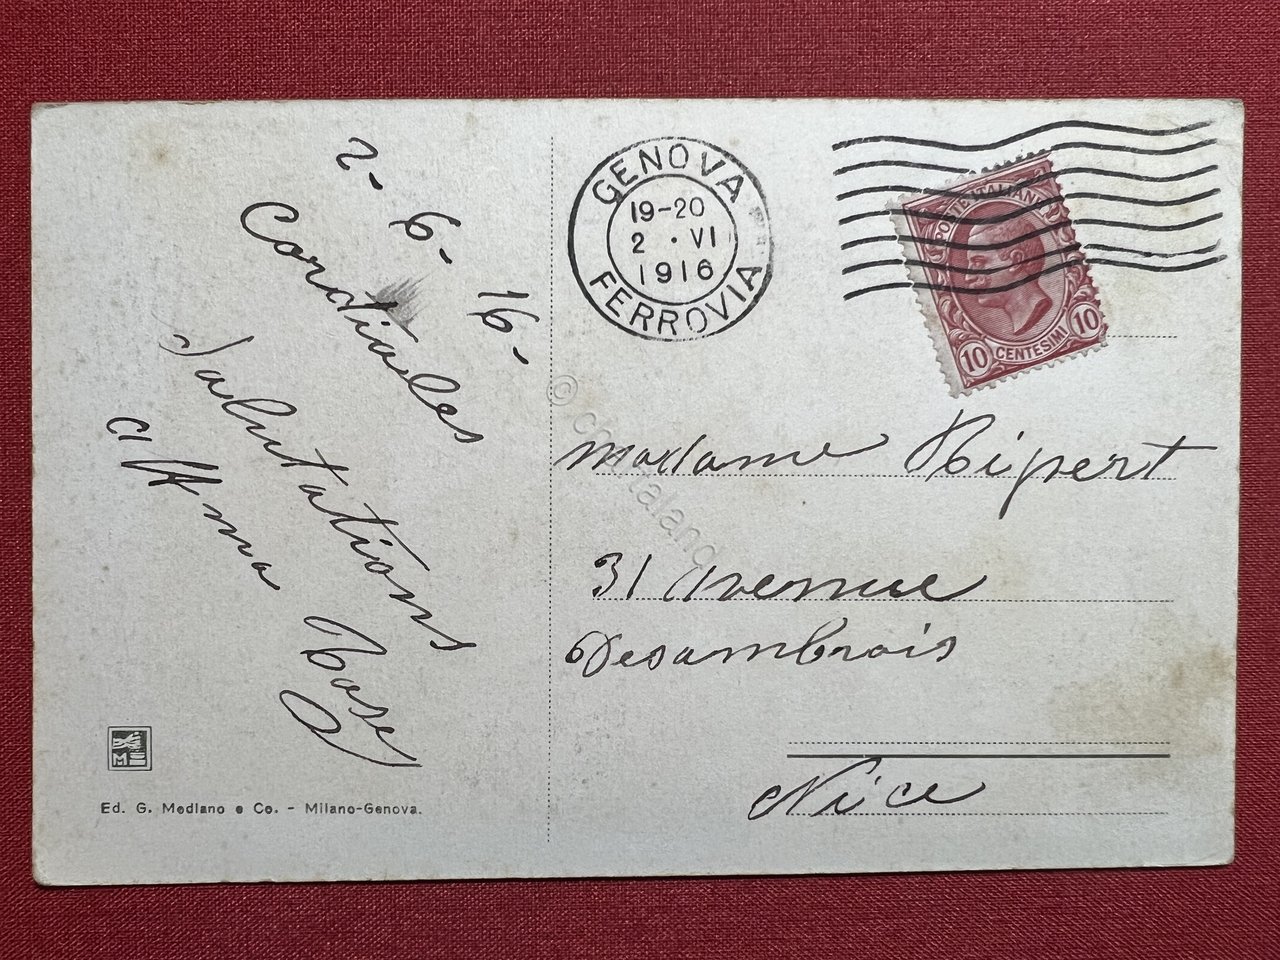 2-6-16-
Cordiales
Salutations
Rose
GENOVA
19-20
2 · VI
1916
FERROVIA
POSTE ITALIANE
10 CENTESIMI 10
Madame Ripert
31 Avenue
Desambrois
Nice
Ed. G. Modiano e Co. - Milano-Genova.
© cartaland